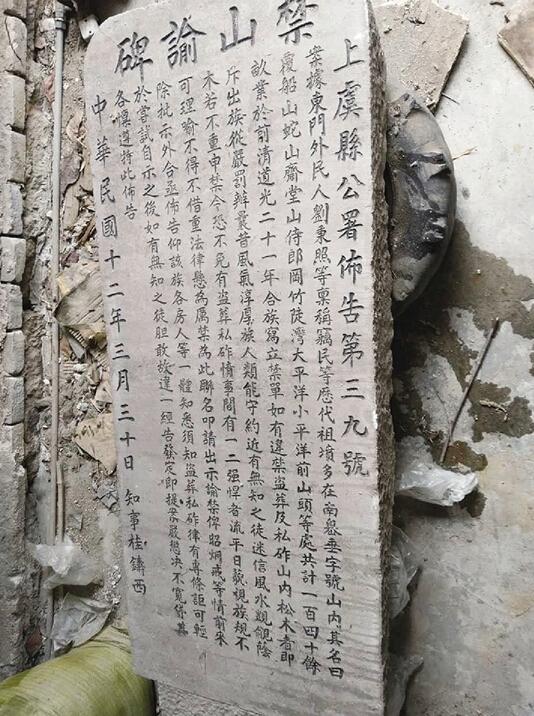 禁山諭碑
上虞縣公署佈告第三九號
案據東門外民人劉東照等稟稱竊民等歷代祖墳多在南畧垂字號山內其名曰
覆船山蛇山齋堂山侍郎岡竹陡灣大平洋小平洋前山頭等處共計一百四十餘
畝業於前清道光二十一年合族寫立禁單如有違禁盜葬及私砟山內松木者即
斥出族從嚴罰辦曩昔風氣淳厚族人類能守約近有無知之徒迷信風水覬覦蔭
木若不重申禁令恐不免有盜葬私砟情事間有一二强悍者流平日藐視族規不
可理喻不得不借重法律懸為厲禁為此聯名叩請出示諭禁俾昭烱戒等情前來
除批示外合亟佈告仰該族各房人等一體知悉須知盜葬私砟律有專條詎可輕
於嘗試自示之後如有無知之徒胆敢故違一經告發定即提案嚴懲决不寬貸其
各懍遵特此佈告
中華民國十二年三月三十日 知事桂鑄西